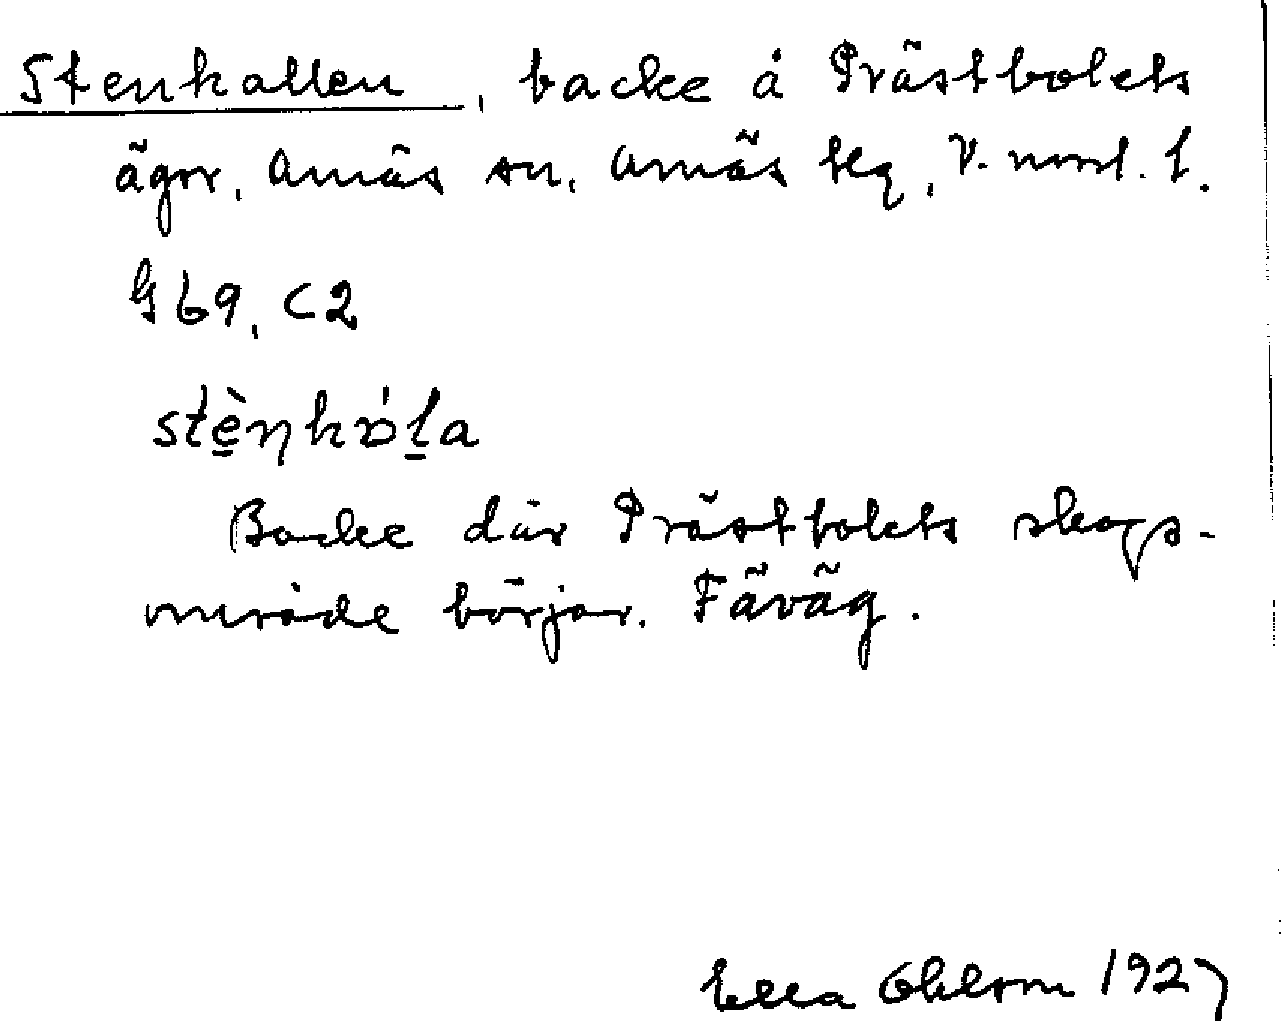 Stenkallen, backe å Prästbolets
ägor, Arnäs sn, Arnäs tlg, V. norrl. l.
G 69, C2
Backe där Prästbolets skogs-
område börjar. Fäväg.
Ella Ohlson 1927